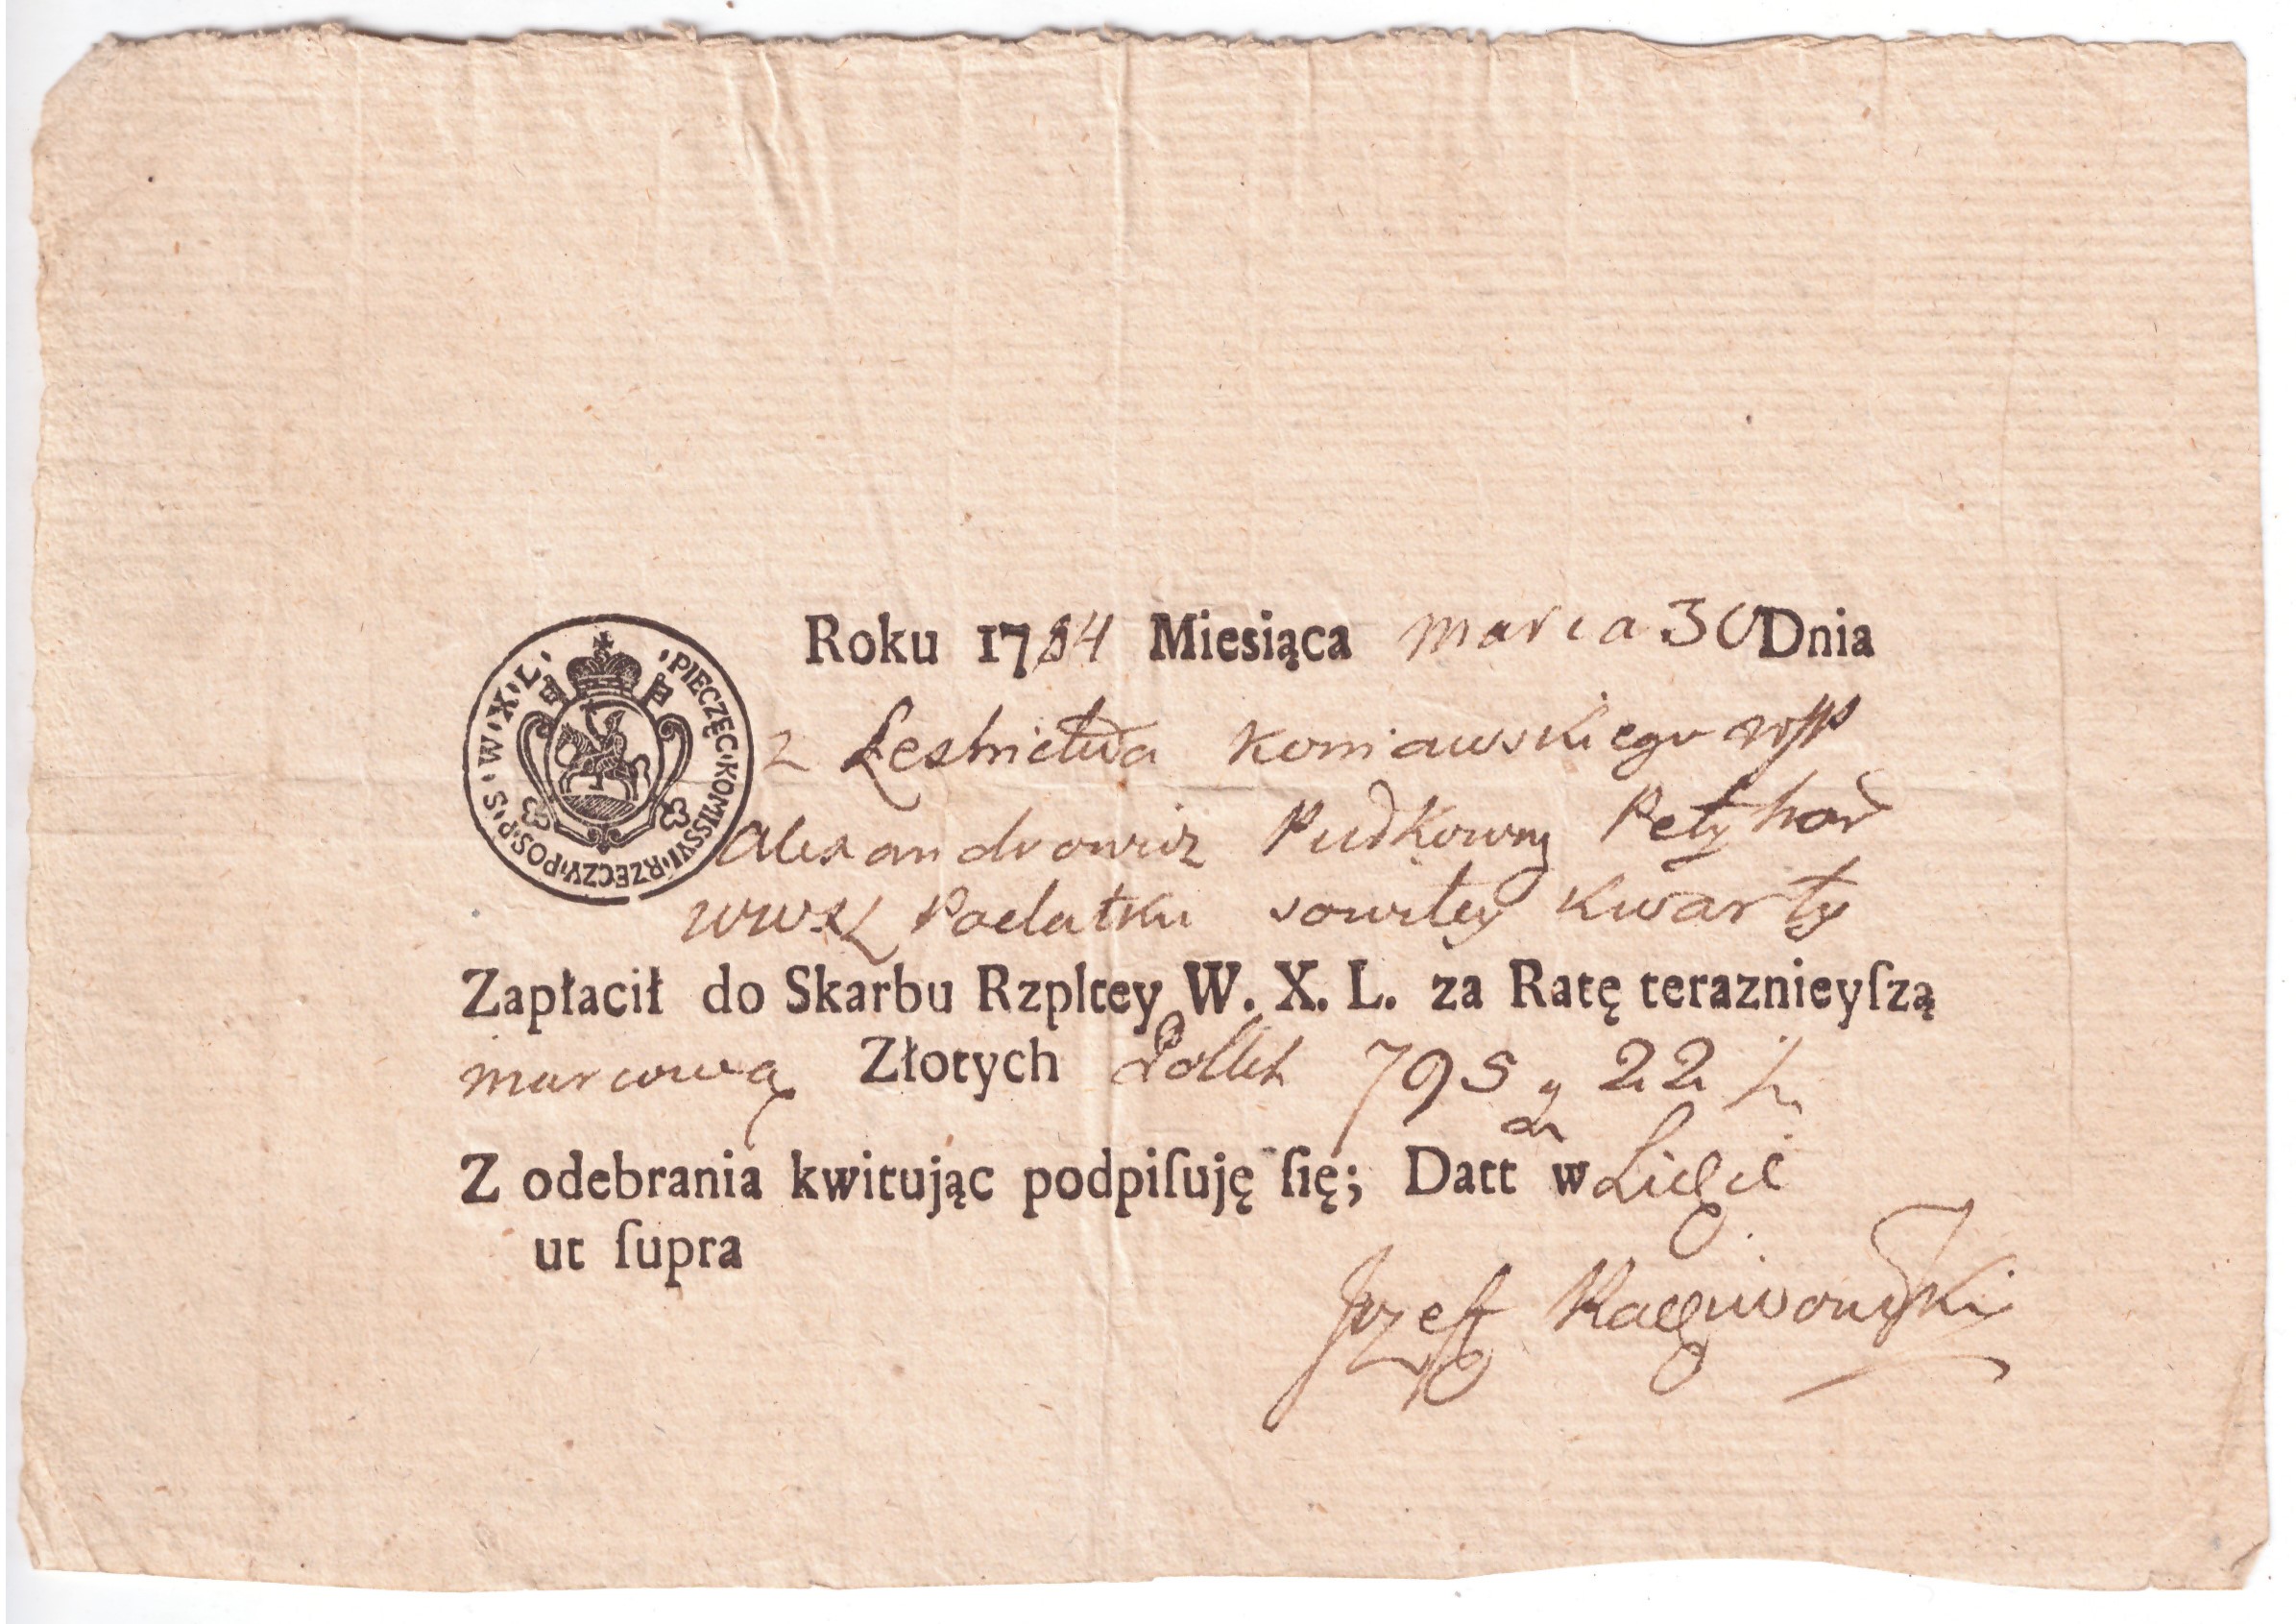 ·PIECZĘC·KOMISSYI·RZECZY·POSP·S·W·X·L·
Roku 1784 Miesiąca marca 30 Dnia
z Lesnictwa Koniawskiego
Alexandrowicz Pułkowny Petyhor
WWXL Podatku sowitey Kwarty
Zapłacił do Skarbu Rzpltey W. X. L. za Ratę teraznieyſzą
marcową Złotych Polkh 795 g 22
Z odebrania kwituiąc podpiſuję ſię; Datt w Lidzie
ut ſupra
Jozeff